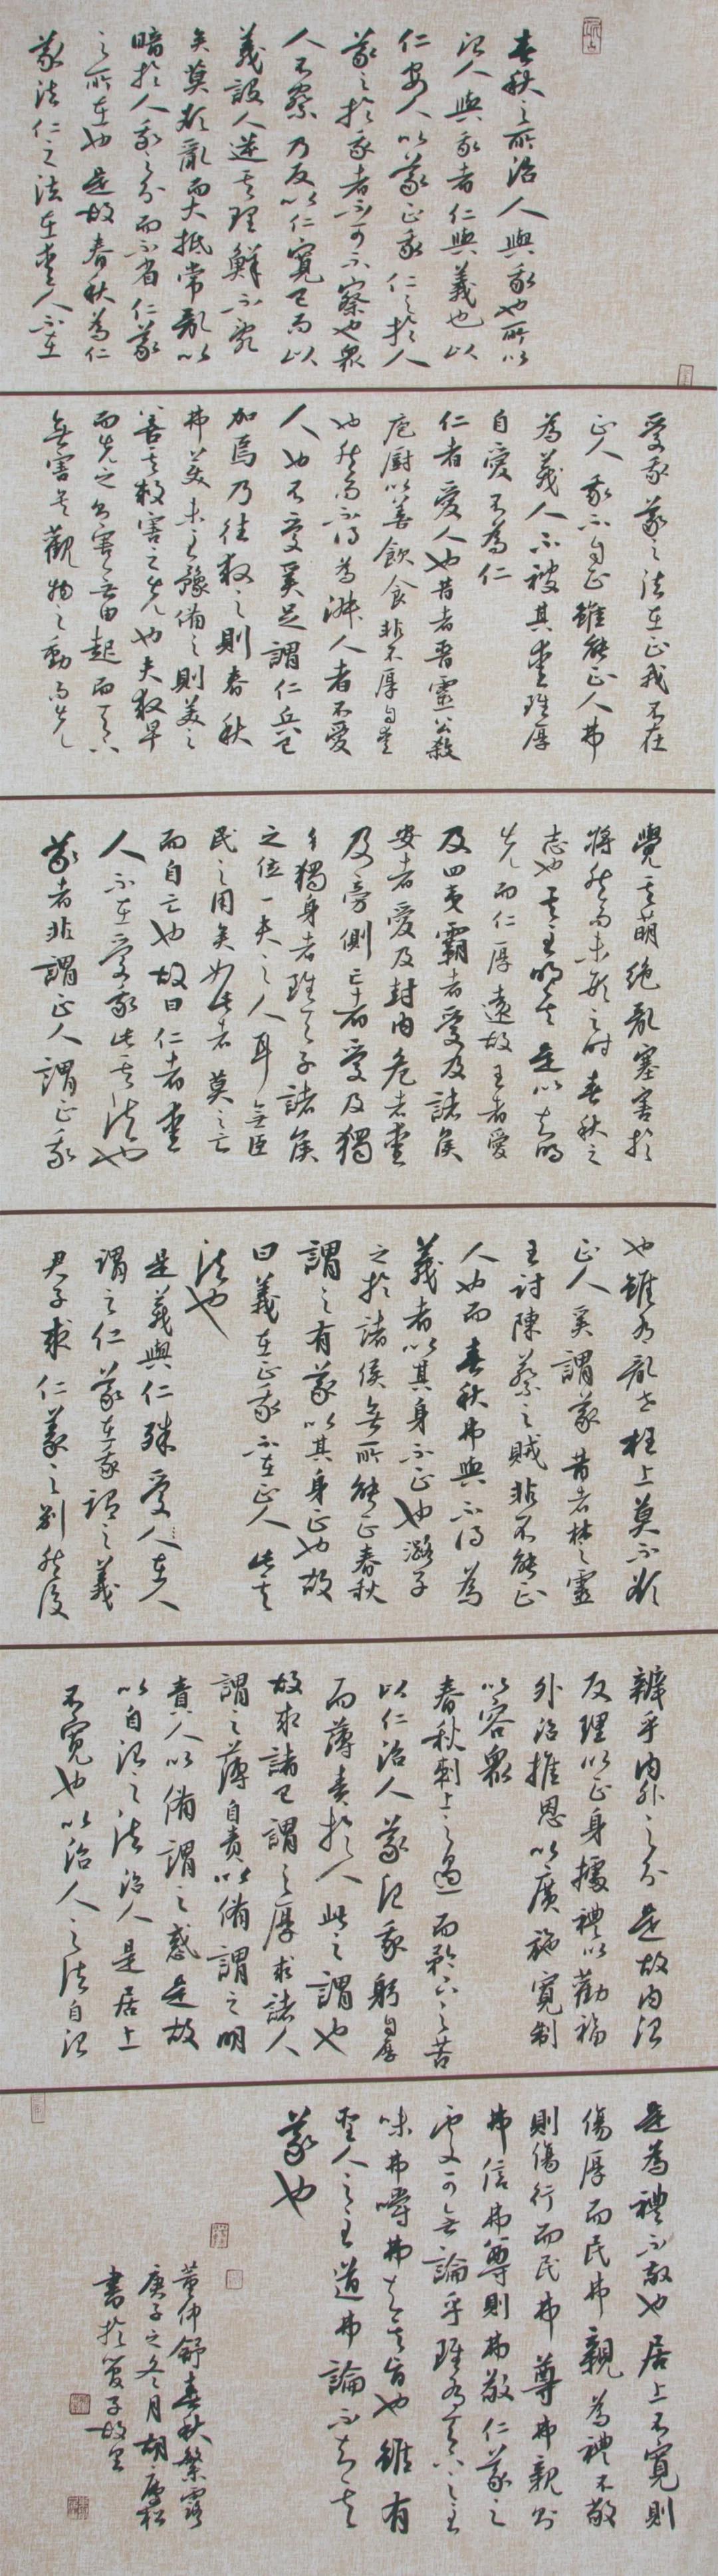 春秋之所治人與我也所以
治人與我者仁與義也以
仁安人以義正我仁之於人
義之於我者不可不察也眾
人不察乃反以仁寬己而以
義設人逆其理鮮不亂
矣莫欲亂而大抵常亂以
暗於人我之分而不省仁義
之所在也是故春秋為仁
義法仁之法在愛人不在
愛我義之法在正我不在
正人我不自正雖能正人弗
為義人不被其愛雖厚
自愛不為仁
仁者愛人也昔者晉靈公殺
庖廚以善飲食非不厚自愛
也然而不得為淑人者不愛
人也不愛奚足謂仁兵已
加焉乃往救之則春秋
弗美未至豫備之則美之
善其救害之先也夫救早
而先之則害無由起而天下
無害矣觀物之動而先
覺其萌絕亂塞害於
將然而未形之時春秋之
志也其至明矣是以知明
先而仁厚遠故王者愛
及四夷霸者愛及諸侯
安者愛及封內危者愛
及旁側亡者愛及獨
身獨身者雖天子諸侯
之位一夫之人耳無臣
民之用矣如此者莫之亡
而自亡也故曰仁者愛
人不在愛我此其法也
義者非謂正人謂正我
也雖有亂世枉上莫不欲
正人奚謂義昔者楚靈
王討陳蔡之賊非不能正
人也而春秋弗與不得為
義者以其身不正也潞子
之於諸侯無所能正春秋
謂之有義以其身正也故
曰義在正我不在正人此其
法也
是義與仁殊愛人在人
謂之仁義在我謂之義
君子求仁義之別然後
辨乎內外之分是故內治
反理以正身據禮以勸福
外治推恩以廣施寬制
以容眾
春秋刺上之過而矜下之苦
以仁治人義治我躬自厚
而薄責於人此之謂也
故求諸己謂之厚求諸人
謂之薄自責以備謂之明
責人以備謂之惑是故
以自治之法治人是居上
不寬也以治人之法自治
是為禮不敬也居上不寬則
傷厚而民弗親為禮不敬
則傷行而民弗尊弗親則
弗信弗尊則弗敬仁義之
處可無論乎雖有天下之至
味弗嚼弗知其旨也雖有
聖人之至道弗論不知其
義也
董仲舒春秋繁露
庚子之冬月胡慶松
書於管子故里